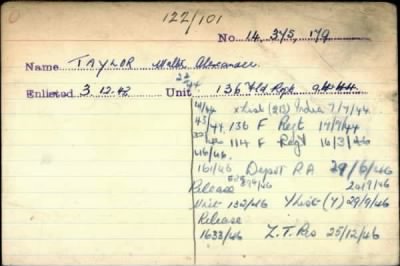 122/101
No. 14,375,179
Name TAYLOR Walter Alexander
Enlisted 3.12.42 Unit 136 Fld Regt
14/44 x list (213) India 7/7/44
43/44. 136 F Regt 17/9/44
114 F Regt 16/3/46
161/46 Depot RA 29/6/46
Release 20/9/46
Unit 132/46 Y list (4) 29/9/46
Release
1633/46 Z.T. Res 25/12/46